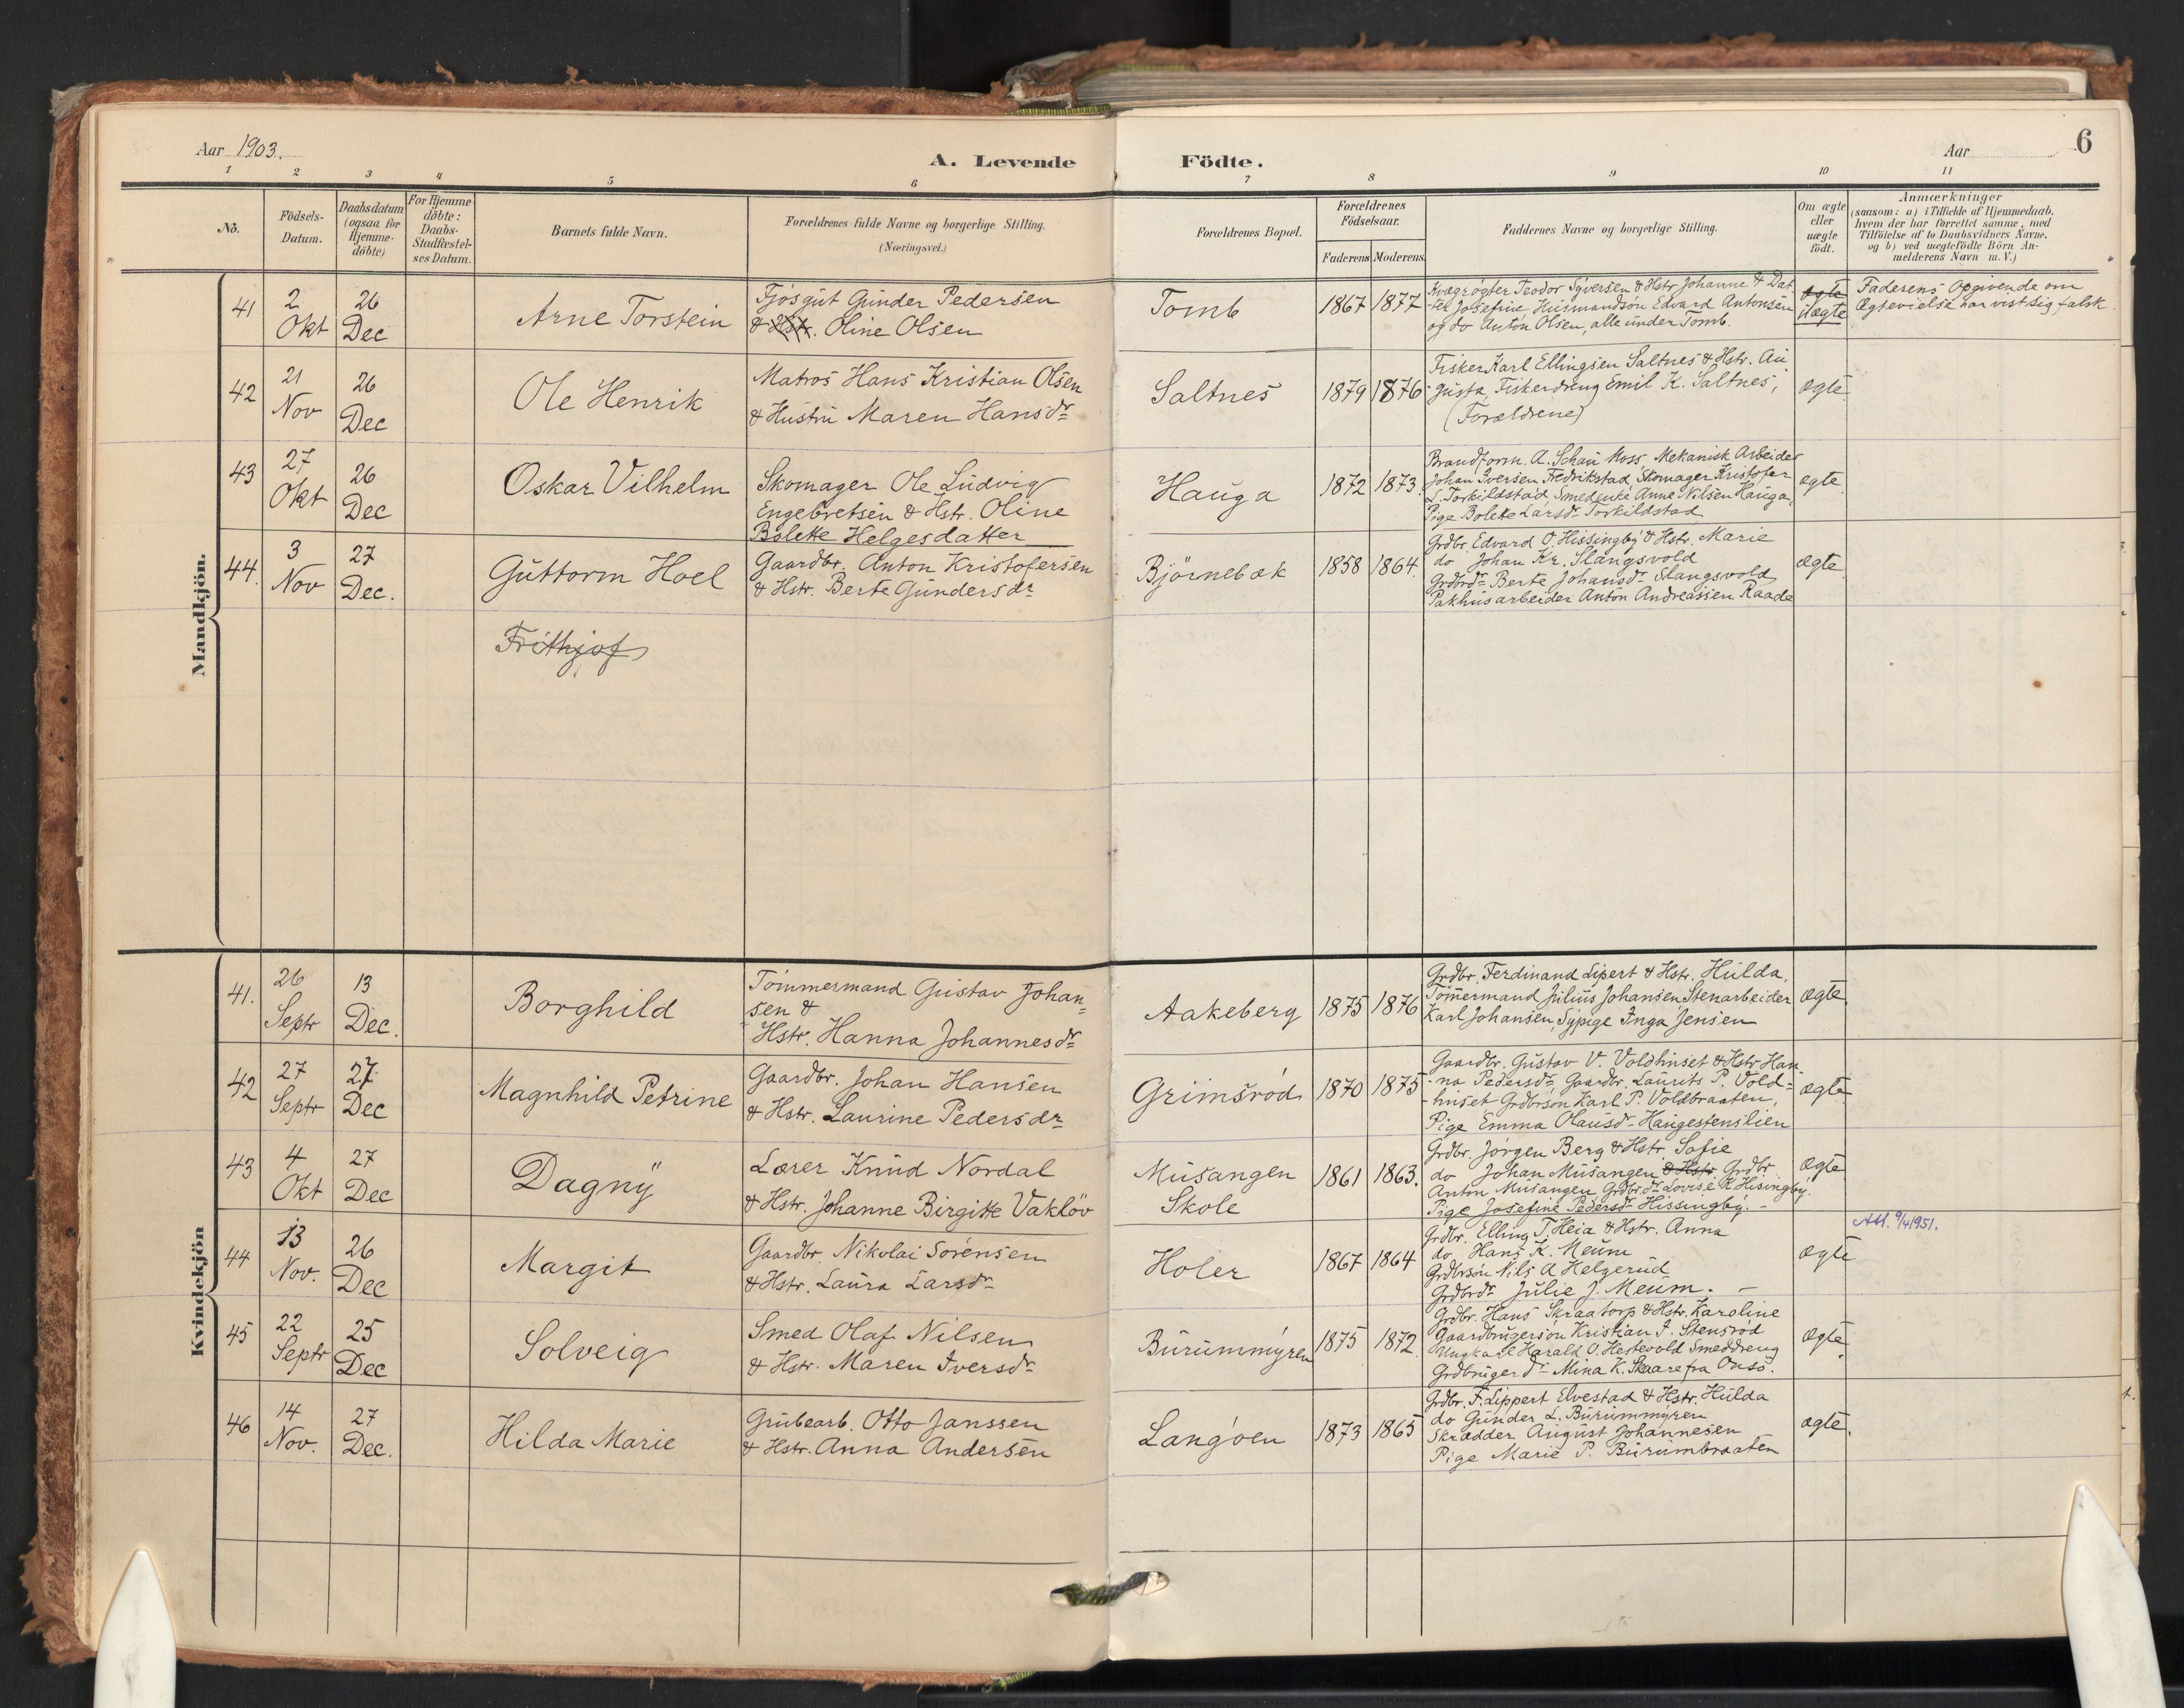 Aar 1903.
A. Levende Födte.
Aar
6
1 2 3 4 5 6 7 8 9 10 11
No.
Födsels-Datum.
Daabsdatum (ogsaa for Hjemme-döbte)
For Hjemme döbte: Daabs-Stadfæstel-ses Datum.
Barnets fulde Navn.
Forældrenes fulde Navne og borgerlige Stilling.
(Næringsvei.)
Forældrenes Bopæl.
Forældrenes Födselsaar.
Faderens Moderens
Faddernes Navne og borgerlige Stilling.
Om ægte eller uægte födt.
Anmærkninger
(saasom: a) i Tilfælde af Hjemmedaab,
hvem der har forrettet samme, med
Tilföielse af to Daabsvidners Navne,
og b) ved uægtefödte Börn An-
melderens Navn m. V.)
Mandkjön.
41 2 Okt 26 Dec Arne Torstein
Fjösgut Gunder Pedersen
& Hstr. Oline Olsen
Tomb 1867 1877
Kvægrögter Teodor Syversen & Hstr Johanne & Dat
-ter Josefine, Husmandsön Edvard Antonsen
og do Anton Olsen, alle under Tomb.
ægte
uægte
Faderens Opgivende om
Ægtevielse har vist sig falsk.
42 21 Nov 26 Dec Ole Henrik
Matros Hans Kristian Olsen
& Hustru Maren Hansdr
Saltnes 1879 1876
Fisker Karl Ellingsen Saltnes & Hstr. Au
gusta, Fiskerdreng Emil K. Saltnes,
(Forældrene)
ægte
43 27 Okt 26 Dec Oskar Vilhelm
Skomager Ole Ludvig
Engebretsen & Hstr. Oline
Bolette Helgesdatter
Hauga 1872 1873.
Brandform. A. Schau Moss Mekanisk Arbeider
Johan Iversen Fredrikstad, Skomager Kristofer
L. Torkildstad, Smedenke Anne Nilsen Hauga,
Pige Bolette Larsdr Torkildstad
ægte
44. 3 Nov 27 Dec. Guttorm Hoel
Gaardbr. Anton Kristofersen
& Hstr. Berte Gundersdr
Björnebæk 1858 1864.
Grdbr. Edvard O. Hissingby & Hstr. Marie
do Johan Kr. Slangsvold
Grdbrdr Berte Johansdr Slangsvold
Pakhusarbeider Anton Andreassen Raade
ægte
Frithjof
Kvindekjön
41. 26 Septr 13 Dec. Borghild
Tömmermand Gustav Johan=
sen &
Hstr. Hanna Johannesdr
Aakeberg 1875 1876
Grdbr. Ferdinand Lipert & Hstr. Hulda,
Tömmermand Julius Johansen Stenarbeider
Karl Johansen, Sypige Inga Jensen
ægte.
42 27 Septr 27 Dec Magnhild Petrine
Gaardbr. Johan Hansen
& Hstr. Laurine Pedersdr
Grimsröd 1870 1875
Gaardbr. Gustav V. Voldhuset & Hstr Han
-na Pedersdr, Gaardbr. Laurits P. Vold-
-huset Grdbrsön Karl P. Voldbraaten,
Pige Emma Olausdr Haugestenslien
ægte
43 4 Okt 27 Dec Dagny
Lærer Knud Nordal
& Hstr. Johanne Birgitte Vaklöv
Musangen Skole 1861 1863.
Grdbr. Jörgen Berg & Hstr Sofie
do Johan Musangen & Hstr Grdbr
Anton Musangen Grdbr.dr Lovise K Hisingby.
Pige Josefine Pedersdr Hissingby. -
ægte
44 13 Nov. 26 Dec Margit
Gaardbr. Nikolai Sörensen
& Hstr. Laura Larsdr
Holer 1867 1864
Grdbr. Elling T. Heia & Hstr. Anna
do Hans K. Meum
Grdbrsön Nils A Helgerud
Grdbrdr Julie J. Meum. -
ægte
Att. 9/4 1951.
45 22 Septr 25 Dec Solveig
Smed Olaf Nilsen
& Hstr. Maren Iversdr
Burummyren 1875 1872
Grdbr. Hans Skraatorp & Hstr. Karoline
Gaardbrugersön Kristian I. Stensröd
Ungkarl Harald O. Hestevold Smeddreng
Grdbrugerdr Mina K. Skaare fra Onsö.
ægte
46 14 Nov. 27 Dec. Hilda Marie
Grubearb. Otto Janssen
& Hstr. Anna Andersen
Langöen 1873 1865
Grdbr. F. Lippert Elvestad & Hstr. Hulda
do Gunder L. Burummyren
Skrædder August Johannesen
Pige Marie P. Burumbraaten
ægte.